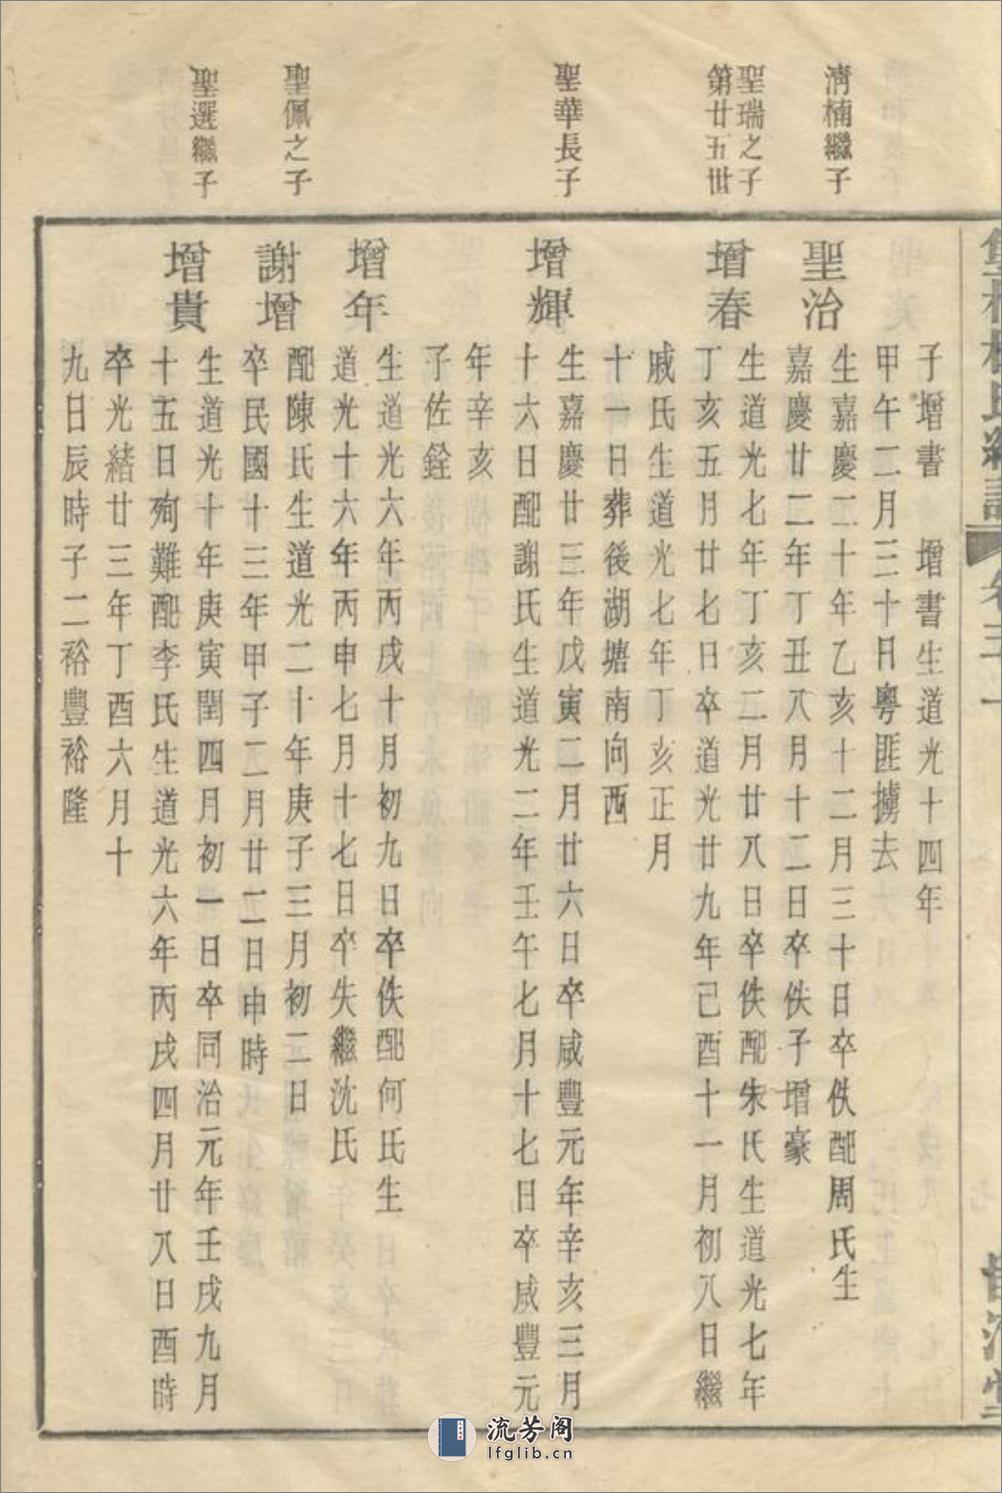 子增書　增書生道光十四年
甲午二月三十日粵匪擄去
清楠繼子
聖治
生嘉慶二十年乙亥十二月三十日卒佚配周氏生
嘉慶廿二年丁丑八月十二日卒佚子增豪
聖瑞之子
第廿五世
增春
生道光七年丁亥二月廿八日卒佚配朱氏生道光七年
丁亥五月廿七日卒道光廿九年己酉十一月初八日繼
戚氏生道光七年丁亥正月
十一日葬後湖塘南向酉
聖華長子
增輝
生嘉慶廿三年戊寅二月廿六日卒咸豐元年辛亥三月
十六日配謝氏生道光二年壬午七月十七日卒咸豐元
年辛亥
子佐銓
增年
生道光六年丙戌十月初九日卒佚配何氏生
道光十六年丙申七月十七日卒失繼沈氏
聖佩之子
謝增
配陳氏生道光二十年庚子三月初二日
卒民國十三年甲子二月廿二日申時
聖選繼子
增貴
生道光十年庚寅閏四月初一日卒同治元年壬戌九月
十五日殉難配李氏生道光六年丙戌四月廿八日酉時
卒光緒廿三年丁酉六月十
九日辰時子二裕豐裕隆
流芳阁
lfglib.cn